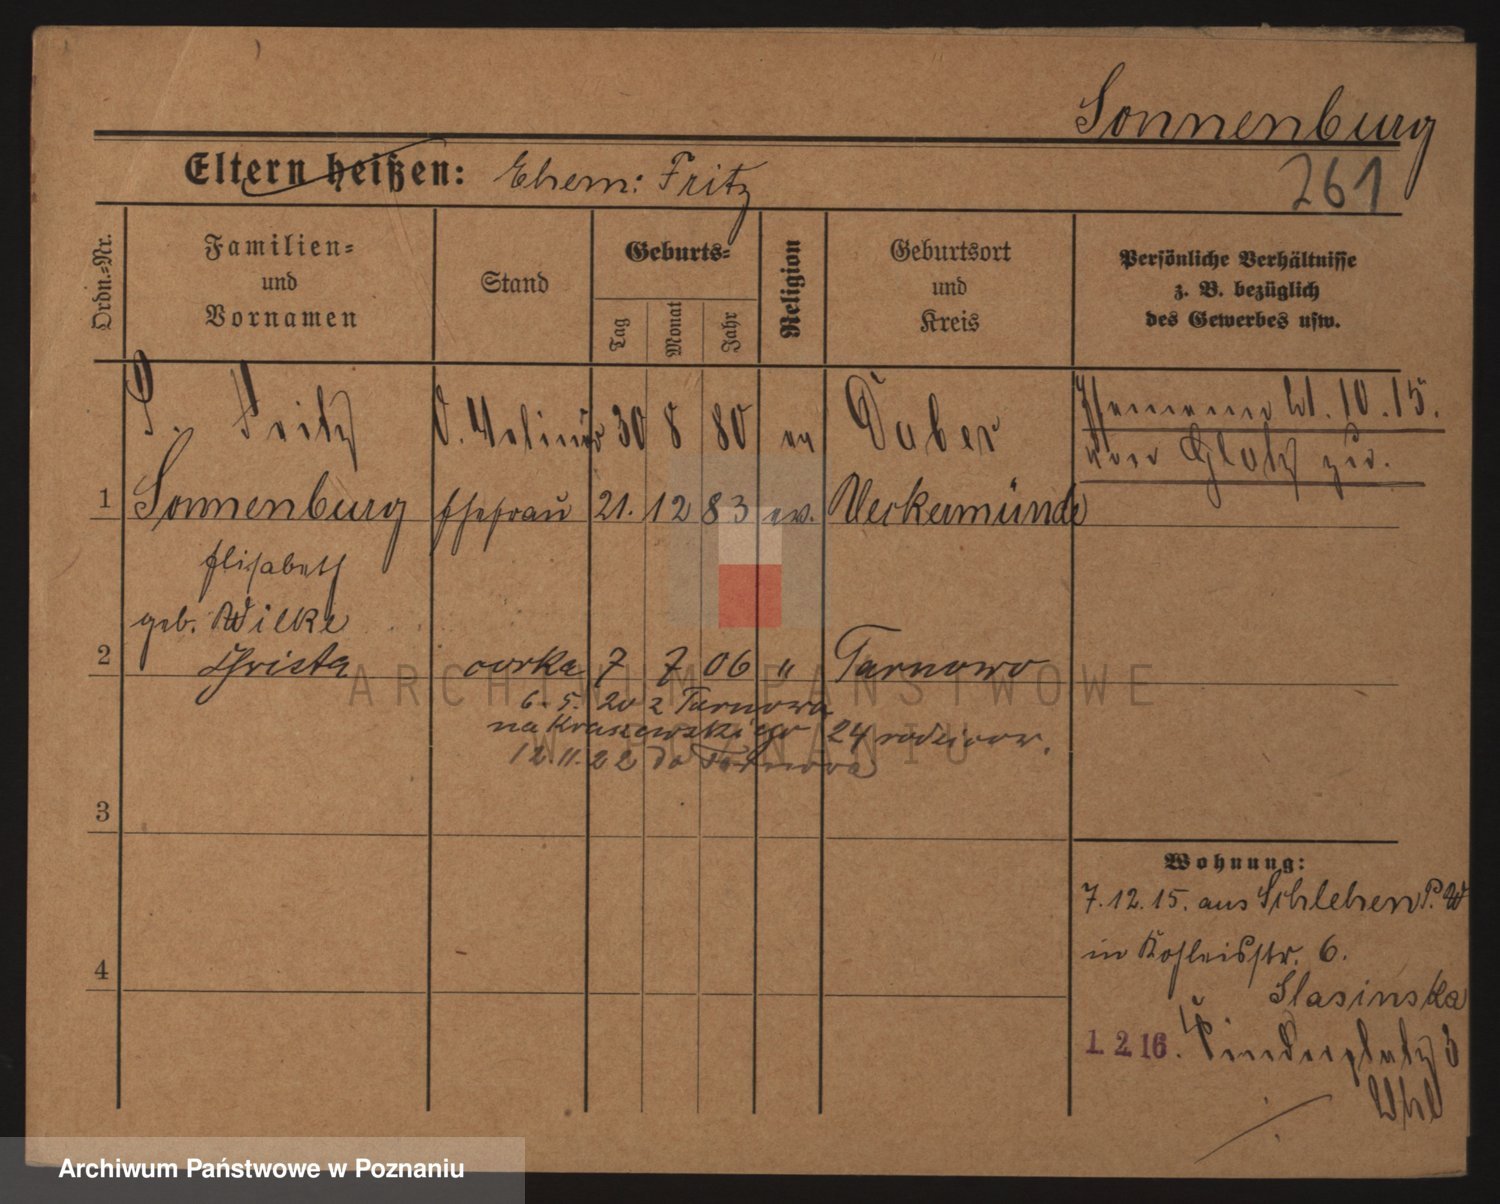 Sonnenburg
261
Eltern heißen: Ehem: Fritz
Ordn.-Nr.
Familien-
und
Vornamen
Stand
Geburts-
Tag
Monat
Jahr
Religion
Geburtsort
und
Kreis
Persönliche Verhältnisse
z. B. bezüglich
des Gewerbes usw.
Fritz 30 8 80 ev Daber
10.15.
von Glatz zur.
1 Sonnenburg Ehefrau 21. 12 83 ev. Ueckermünde
Elisabeth
geb. Wilke
2 Christa corka 7 7 06 " Tarnowo
6. 5. 20 z Tarnowa
na Kraszewskiego 24 rodzicow.
12.11.22 do Tarnowa
3
4
Wohnung:
7.12.15. aus Schlehen P. W
in 6.
Slasinska
1. 2. 16. 3
ARCHIWUM PAŃSTWOWE
W POZNANIU
Archiwum Państwowe w Poznaniu